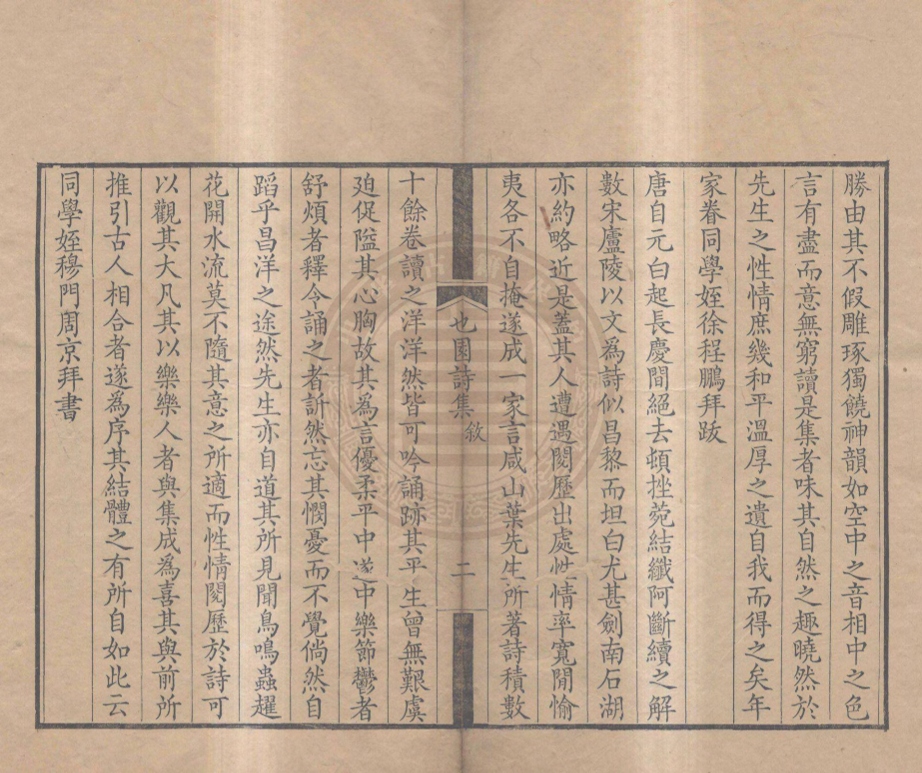 勝由其不假雕琢獨饒神韻如空中之音相中之色
言有盡而意無窮讀是集者味其自然之趣曉然於
先生之性情庶幾和平溫厚之遺自我而得之矣年
家眷同學姪徐程鵬拜跋
唐自元白起長慶間絕去頓挫菀結纖阿斷續之解
數宋廬陵以文為詩似昌黎而坦白尤甚劍南石湖
亦約略近是蓋其人遭遇閱歷出處性情率寬閒愉
夷各不自掩遂成一家言咸山葉先生所著詩積數
也園詩集 敘
二
十餘卷讀之洋洋然皆可吟誦跡其平生曾無艱虞
廹促隘其心胸故其為言優柔平中遂中樂節鬱者
舒煩者釋今誦之者訢然忘其憫憂而不覺倘然自
蹈乎昌洋之途然先生亦自道其所見聞鳥鳴蟲趯
花開水流莫不隨其意之所適而性情閱歷於詩可
以觀其大凡其以樂樂人者與集成為喜其與前所
推引古人相合者遂為序其結體之有所自如此云
同學姪穆門周京拜書